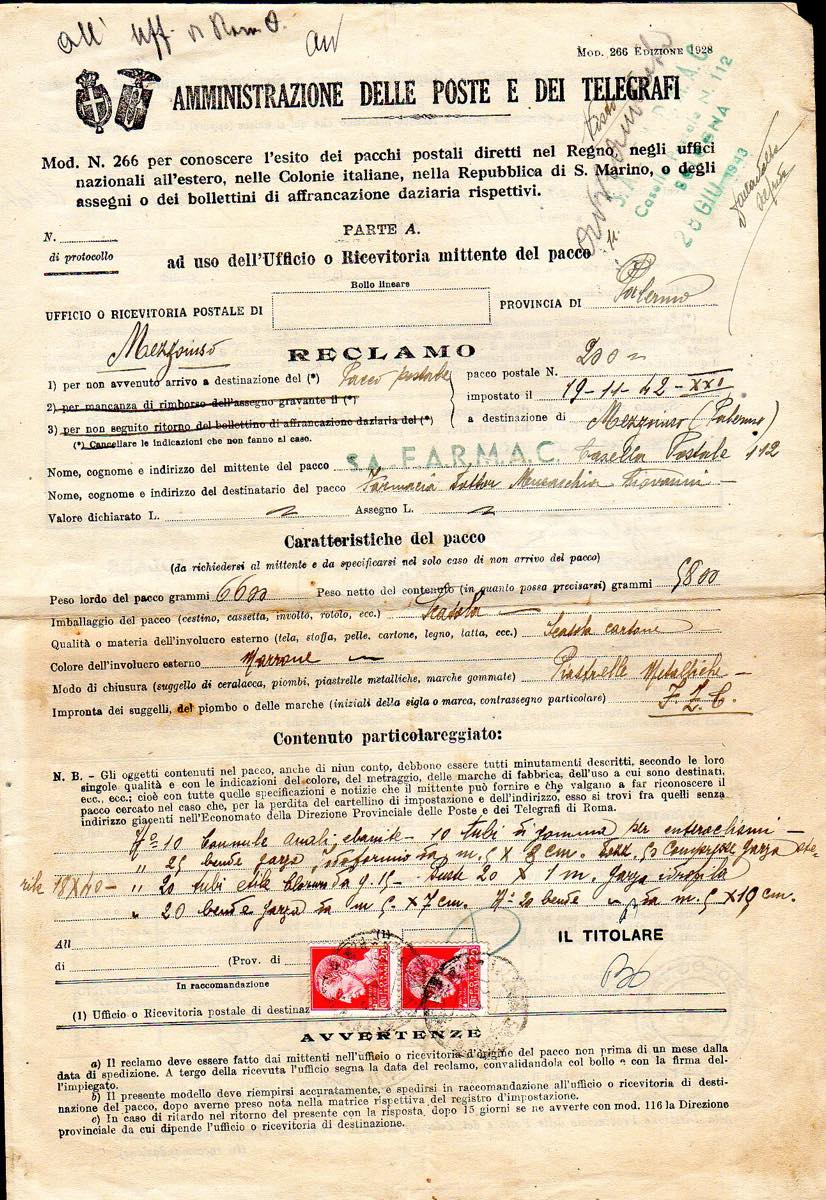 all' Uff. di Roma O.
MOD. 266 EDIZIONE 1928
AMMINISTRAZIONE DELLE POSTE E DEI TELEGRAFI
S.A. F.A.R.M.A.C.
Casella Postale N. 112
BOLOGNA
28 GIU 1943
Mod. N. 266 per conoscere l'esito dei pacchi postali diretti nel Regno, negli uffici
nazionali all'estero, nelle Colonie italiane, nella Repubblica di S. Marino, o degli
assegni o dei bollettini di affrancazione daziaria rispettivi.
N.
di protocollo
PARTE A.
ad uso dell'Ufficio o Ricevitoria mittente del pacco
Bollo lineare
UFFICIO O RICEVITORIA POSTALE DI
PROVINCIA DI Palermo
Mezzoiuso
RECLAMO
1) per non avvenuto arrivo a destinazione del (*) Pacco postale
2) per mancanza di rimborso dell'assegno gravante il (*)
3) per non seguito ritorno del bollettino di affrancazione daziaria del (*)
(*) Cancellare le indicazioni che non fanno al caso.
pacco postale N. 200
impostato il 19-11-42-XXI
a destinazione di Mezzoiuso (Palermo)
Nome, cognome e indirizzo del mittente del pacco S.A. F.A.R.M.A.C. Casella Postale 112
Nome, cognome e indirizzo del destinatario del pacco Farmacia Dottor Giovanni -
Valore dichiarato L. Assegno L.
Caratteristiche del pacco
(da richiedersi al mittente e da specificarsi nel solo caso di non arrivo del pacco)
Peso lordo del pacco grammi 6600 Peso netto del contenuto (in quanto possa precisarsi) grammi 5800
Imballaggio del pacco (cestino, cassetta, involto, rotolo, ecc.) Scatola -
Qualità o materia dell'involucro esterno (tela, stoffa, pelle, cartone, legno, latta, ecc.) Scatola cartone
Colore dell'involucro esterno Marrone -
Modo di chiusura (suggello di ceralacca, piombi, piastrelle metalliche, marche gommate) Piastrelle Metalliche -
Impronta dei suggelli, del piombo o delle marche (iniziali della sigla o marca, contrassegno particolare)
Contenuto particolareggiato:
N. B. - Gli oggetti contenuti nel pacco, anche di niun conto, debbono essere tutti minutamenti descritti, secondo le loro
singole qualità e con le indicazioni del colore, del metraggio, delle marche di fabbrica, dell'uso a cui sono destinati,
ecc., ecc.; cioè con tutte quelle specificazioni e notizie che il mittente può fornire e che valgano a far riconoscere il
pacco cercato nel caso che, per la perdita del cartellino di impostazione e dell'indirizzo, esso si trovi fra quelli senza
indirizzo giacenti nell'Economato della Direzione Provinciale delle Poste e dei Telegrafi di Roma.
No 10 Cannule anali, ebanite - 10 tubi di gomma per enteroclismi -
" 25 bende garza, iodoformio da m. 5 X 8 cm. 50 Compresse garza ste-
rile 18X40 - " 20 tubi etile g. 15 - Buste 20 X 1 m. garza idrofila
" 20 bende garza da m 5. X 7 cm. No 20 bende " da m. 5 X 10 cm.
All
(1)
di (Prov. di
In raccomandazione
IL TITOLARE
(1) Ufficio o Ricevitoria postale di destinaz
AVVERTENZE
a) Il reclamo deve essere fatto dai mittenti nell'ufficio o ricevitoria d'origine del pacco non prima di un mese dalla
data di spedizione. A tergo della ricevuta l'ufficio segna la data del reclamo, convalidandola col bollo e con la firma del-
l'impiegato.
b) Il presente modello deve riempirsi accuratamente, e spedirsi in raccomandazione all'ufficio o ricevitoria di desti-
nazione del pacco, dopo averne preso nota nella matrice rispettiva del registro d'impostazione.
c) In caso di ritardo nel ritorno del presente con la risposta, dopo 15 giorni se ne avverte con mod. 116 la Direzione
provinciale da cui dipende l'ufficio o ricevitoria di destinazione.